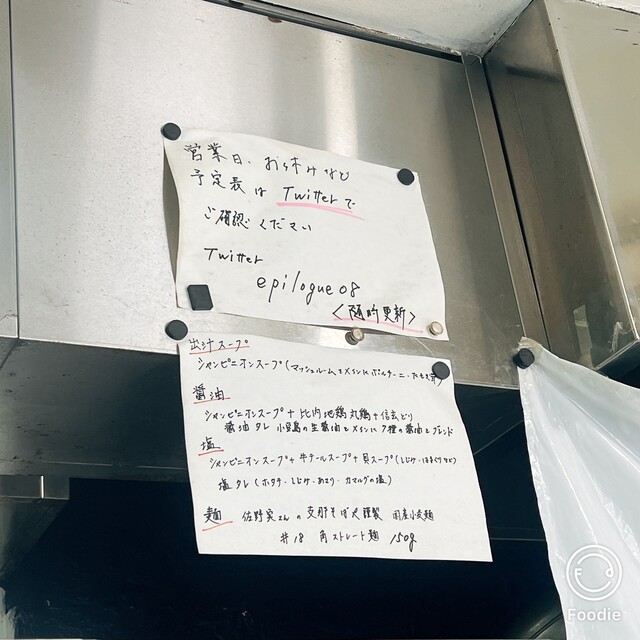 営業日、お休みなど
予定表は Twitterで
ご確認ください
Twitter
epilogue08
<随時更新>
出汁スープ
シャンピニオンスープ(マッシュルームをメインに
醤油
シャンピニオンスープ+比内地鶏丸鶏+信玄どり
醤油タレ 小豆島の生醤油をメインに7種の醤油をブレンド
塩
シャンピニオンスープ+牛テールスープ+貝スープ(しじみ・はまぐりなど)
塩タレ(ホタテ・しじみ・あさり・カマルグの塩)
麺 佐野実さんの支那そばや謹製 国産小麦麺
#18 角ストレート麺 150g
Foodie